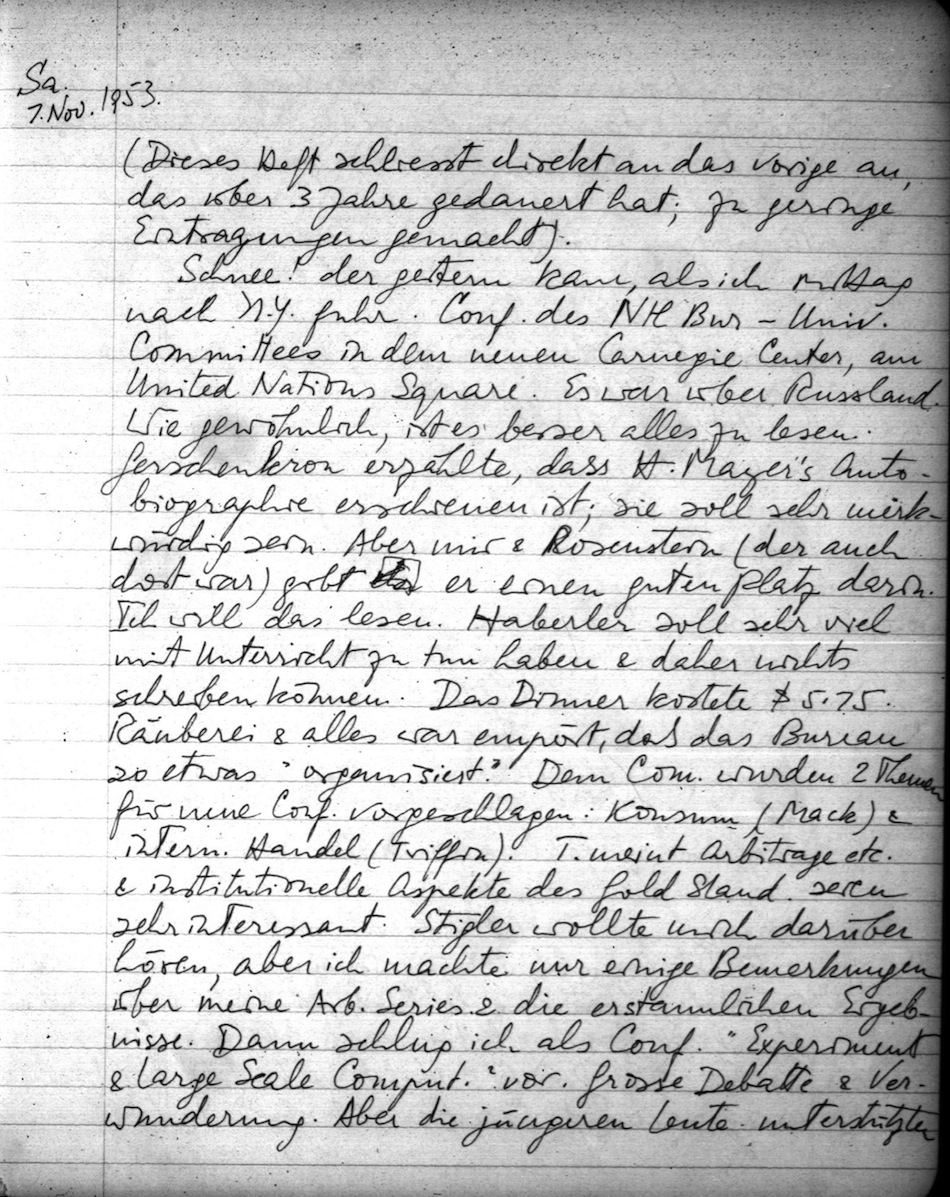 Sa.
7. Nov. 1953.
(Dieses Heft schliesst direkt an das vorige an,
das über 3 Jahre gedauert hat; zu geringe
Eintragungen gemacht).
Schnee! der gestern kam, als ich mittag
nach N.Y. fuhr. Conf. des Bur – Univ.
Committees in dem neuen Carnegie Center, am
United Nations Square. Es war über Russland.
Wie gewöhnlich, ist es besser alles zu lesen.
Gerschenkron erzählte, dass H. Mayer's Auto-
biographie erschienen ist; sie soll sehr merk-
würdig sein. Aber mir & Rosenstein (der auch
dort war) gibt er einen guten Platz darin.
Ich will das lesen. Haberler soll sehr viel
mit Unterricht zu tun haben & daher nichts
schreiben können. Das Dinner kostete $ 5.75.
Räuberei & alles war empört, dass das Bureau
so etwas "organisiert." Dem Com. wurden 2 Themen
für neue Conf. vorgeschlagen: Konsum (Mack) &
intern. Handel (Triffin). T. meint Arbitrage etc.
& institutionelle Aspekte des Gold Stand. seien
sehr interessant. Stigler wollte mich darüber
hören, aber ich machte nur einige Bemerkungen
über meine Arb. Series & die erstaunlichen Ergeb-
nisse. Dann schlug ich als Conf. "Experiment
& large Scale Comput." vor. Grosse Debatte & Ver-
wunderung. Aber die jüngeren Leute unterstützten